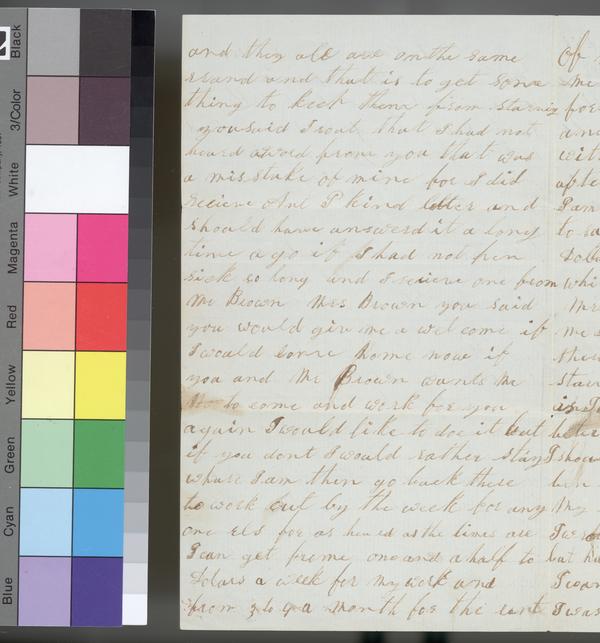 Black
3/Color
White
Magenta
Red
Yellow
Green
Cyan
Blue
and they all are on the same
and that is to get some
thing to keep them from starving
you said I rout that I had not
heard a word from you that was
a misstake of mine for I did
recieve kind letter and
should have answerd it a long
time ago if I had not ben
sick so long and I recieve one from
Mr Brown Mrs Brown you said
you would give me a wel come if
I would come home now if
you and Mr Brown wants me
to come and work for you
again I would like to doe it but
if you dont I would rather stay
whare I am then go back there
to work out by the week for any
one els for as hard as the times are
I can get frome one and a half to
dolars a week for my work and
from 3 to 4 a month for the
Of
me
for
and
wit
afte
I am
to
Dola
whi
Mr
me
ther
star
in
beter
I shou
ben
My
I we
but
I wan
I was